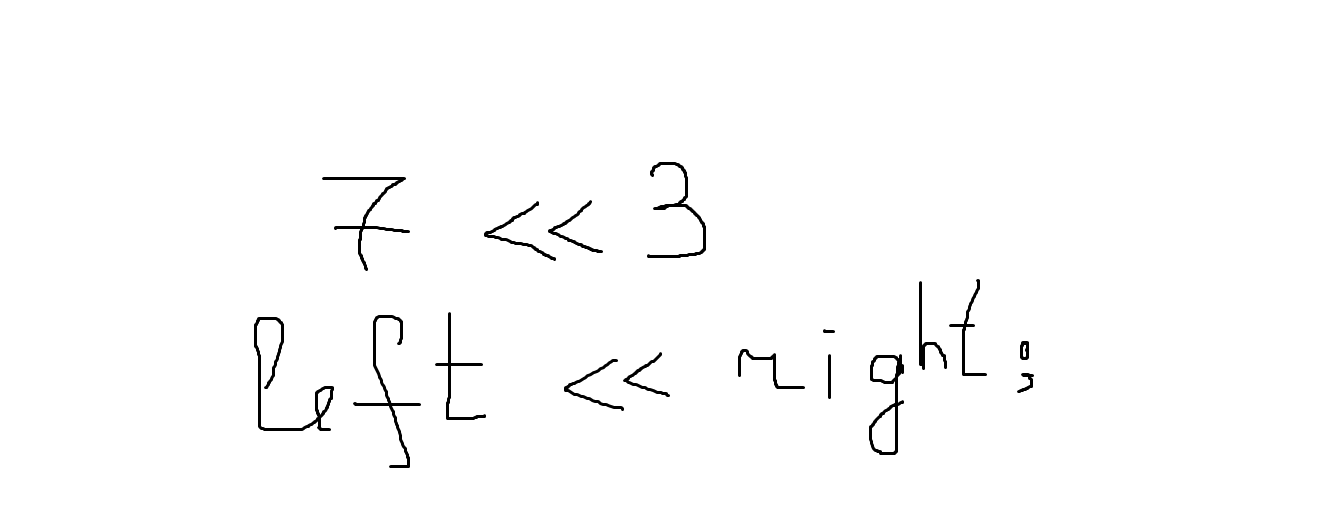 7 << 3
left << right;